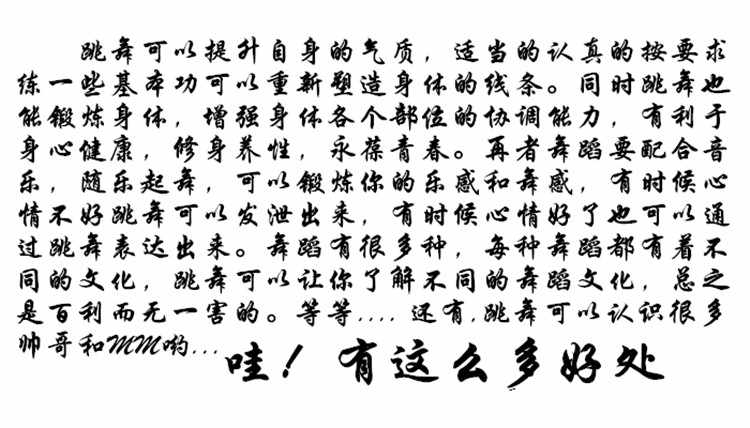 跳舞可以提升自身的气质，适当的认真的按要求
练一些基本功可以重新塑造身体的线条。同时跳舞也
能锻炼身体，增强身体各个部位的协调能力，有利于
身心健康，修身养性，永葆青春。再者舞蹈要配合音
乐，随乐起舞，可以锻炼你的乐感和舞感，有时候心
情不好跳舞可以发泄出来，有时候心情好了也可以通
过跳舞表达出来。舞蹈有很多种，每种舞蹈都有着不
同的文化，跳舞可以让你了解不同的舞蹈文化，总之
是百利而无一害的。等等.... 还有,跳舞可以认识很多
帅哥和MM哟...
哇！有这么多好处